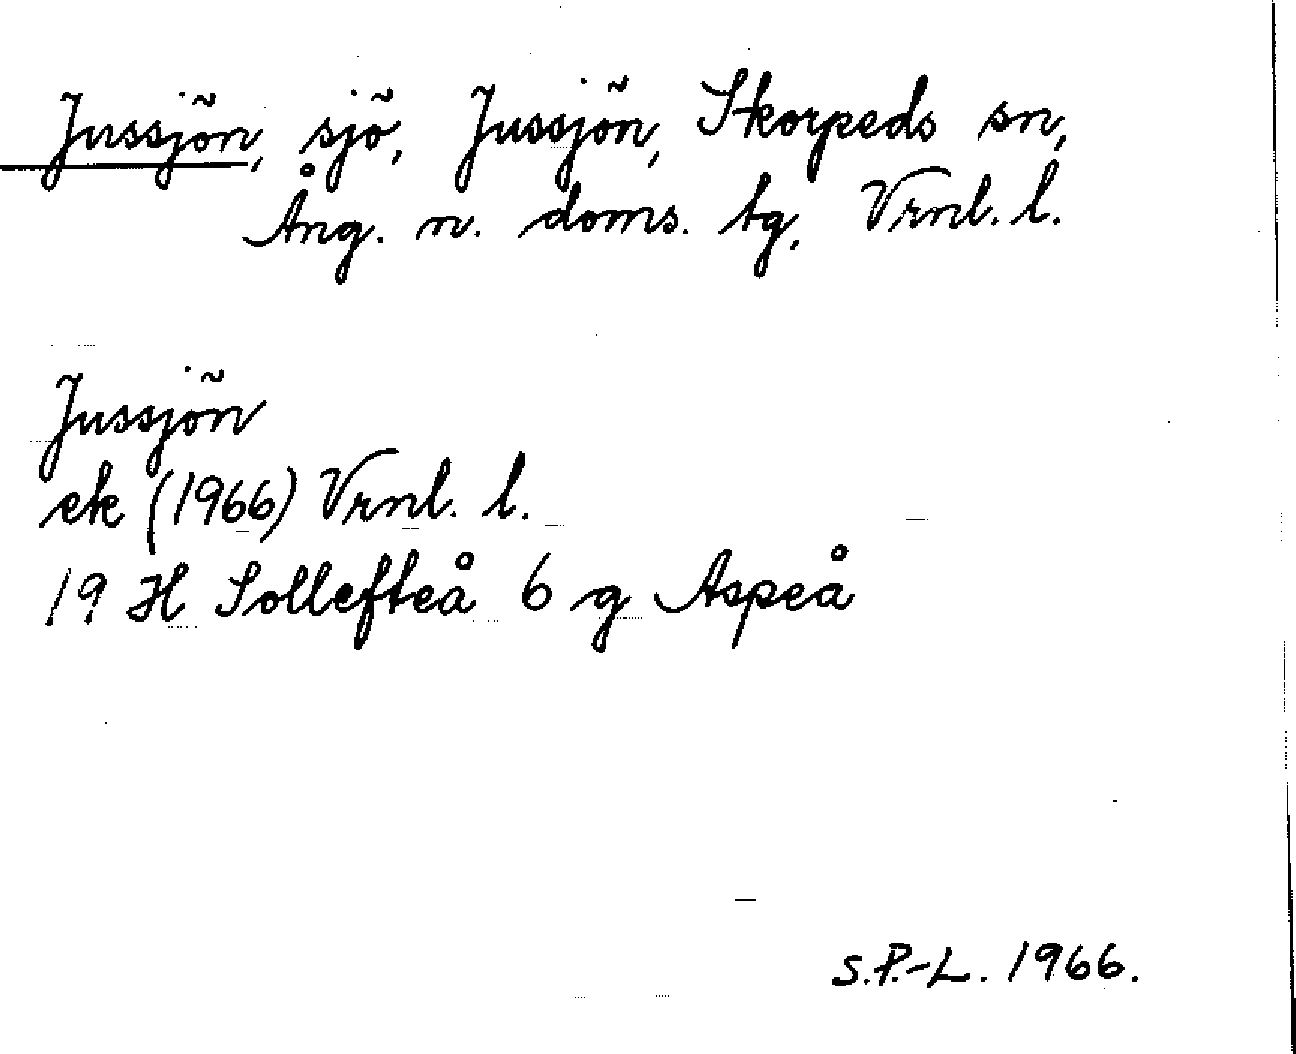 Jussjön, sjö, Jussjön, Skorpeds sn,
Ång. n. doms. tg, Vrnl. l.
Jussjön
ek (1966) Vrnl. l.
19 H Sollefteå 6 g Aspeå
S.P.-L. 1966.